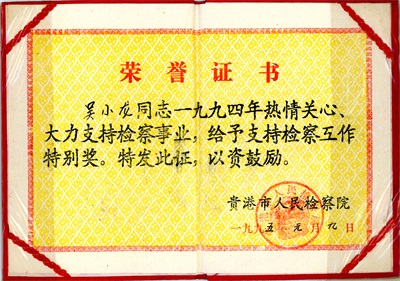 荣誉证书
吴小龙同志一九九四年热情关心、
大力支持检察事业,给予支持检察工作
特别奖。特发此证,以资鼓励。
贵港市人民检察院
一九九五年元月九日